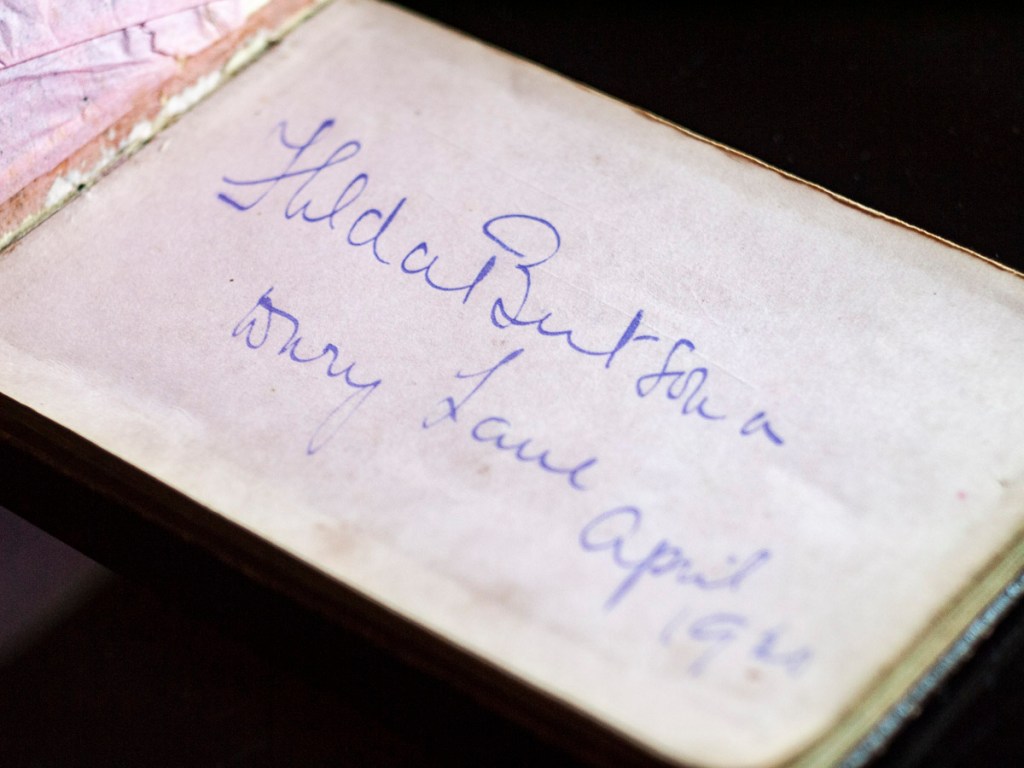 Hilda Butsova
Drury Lane
April